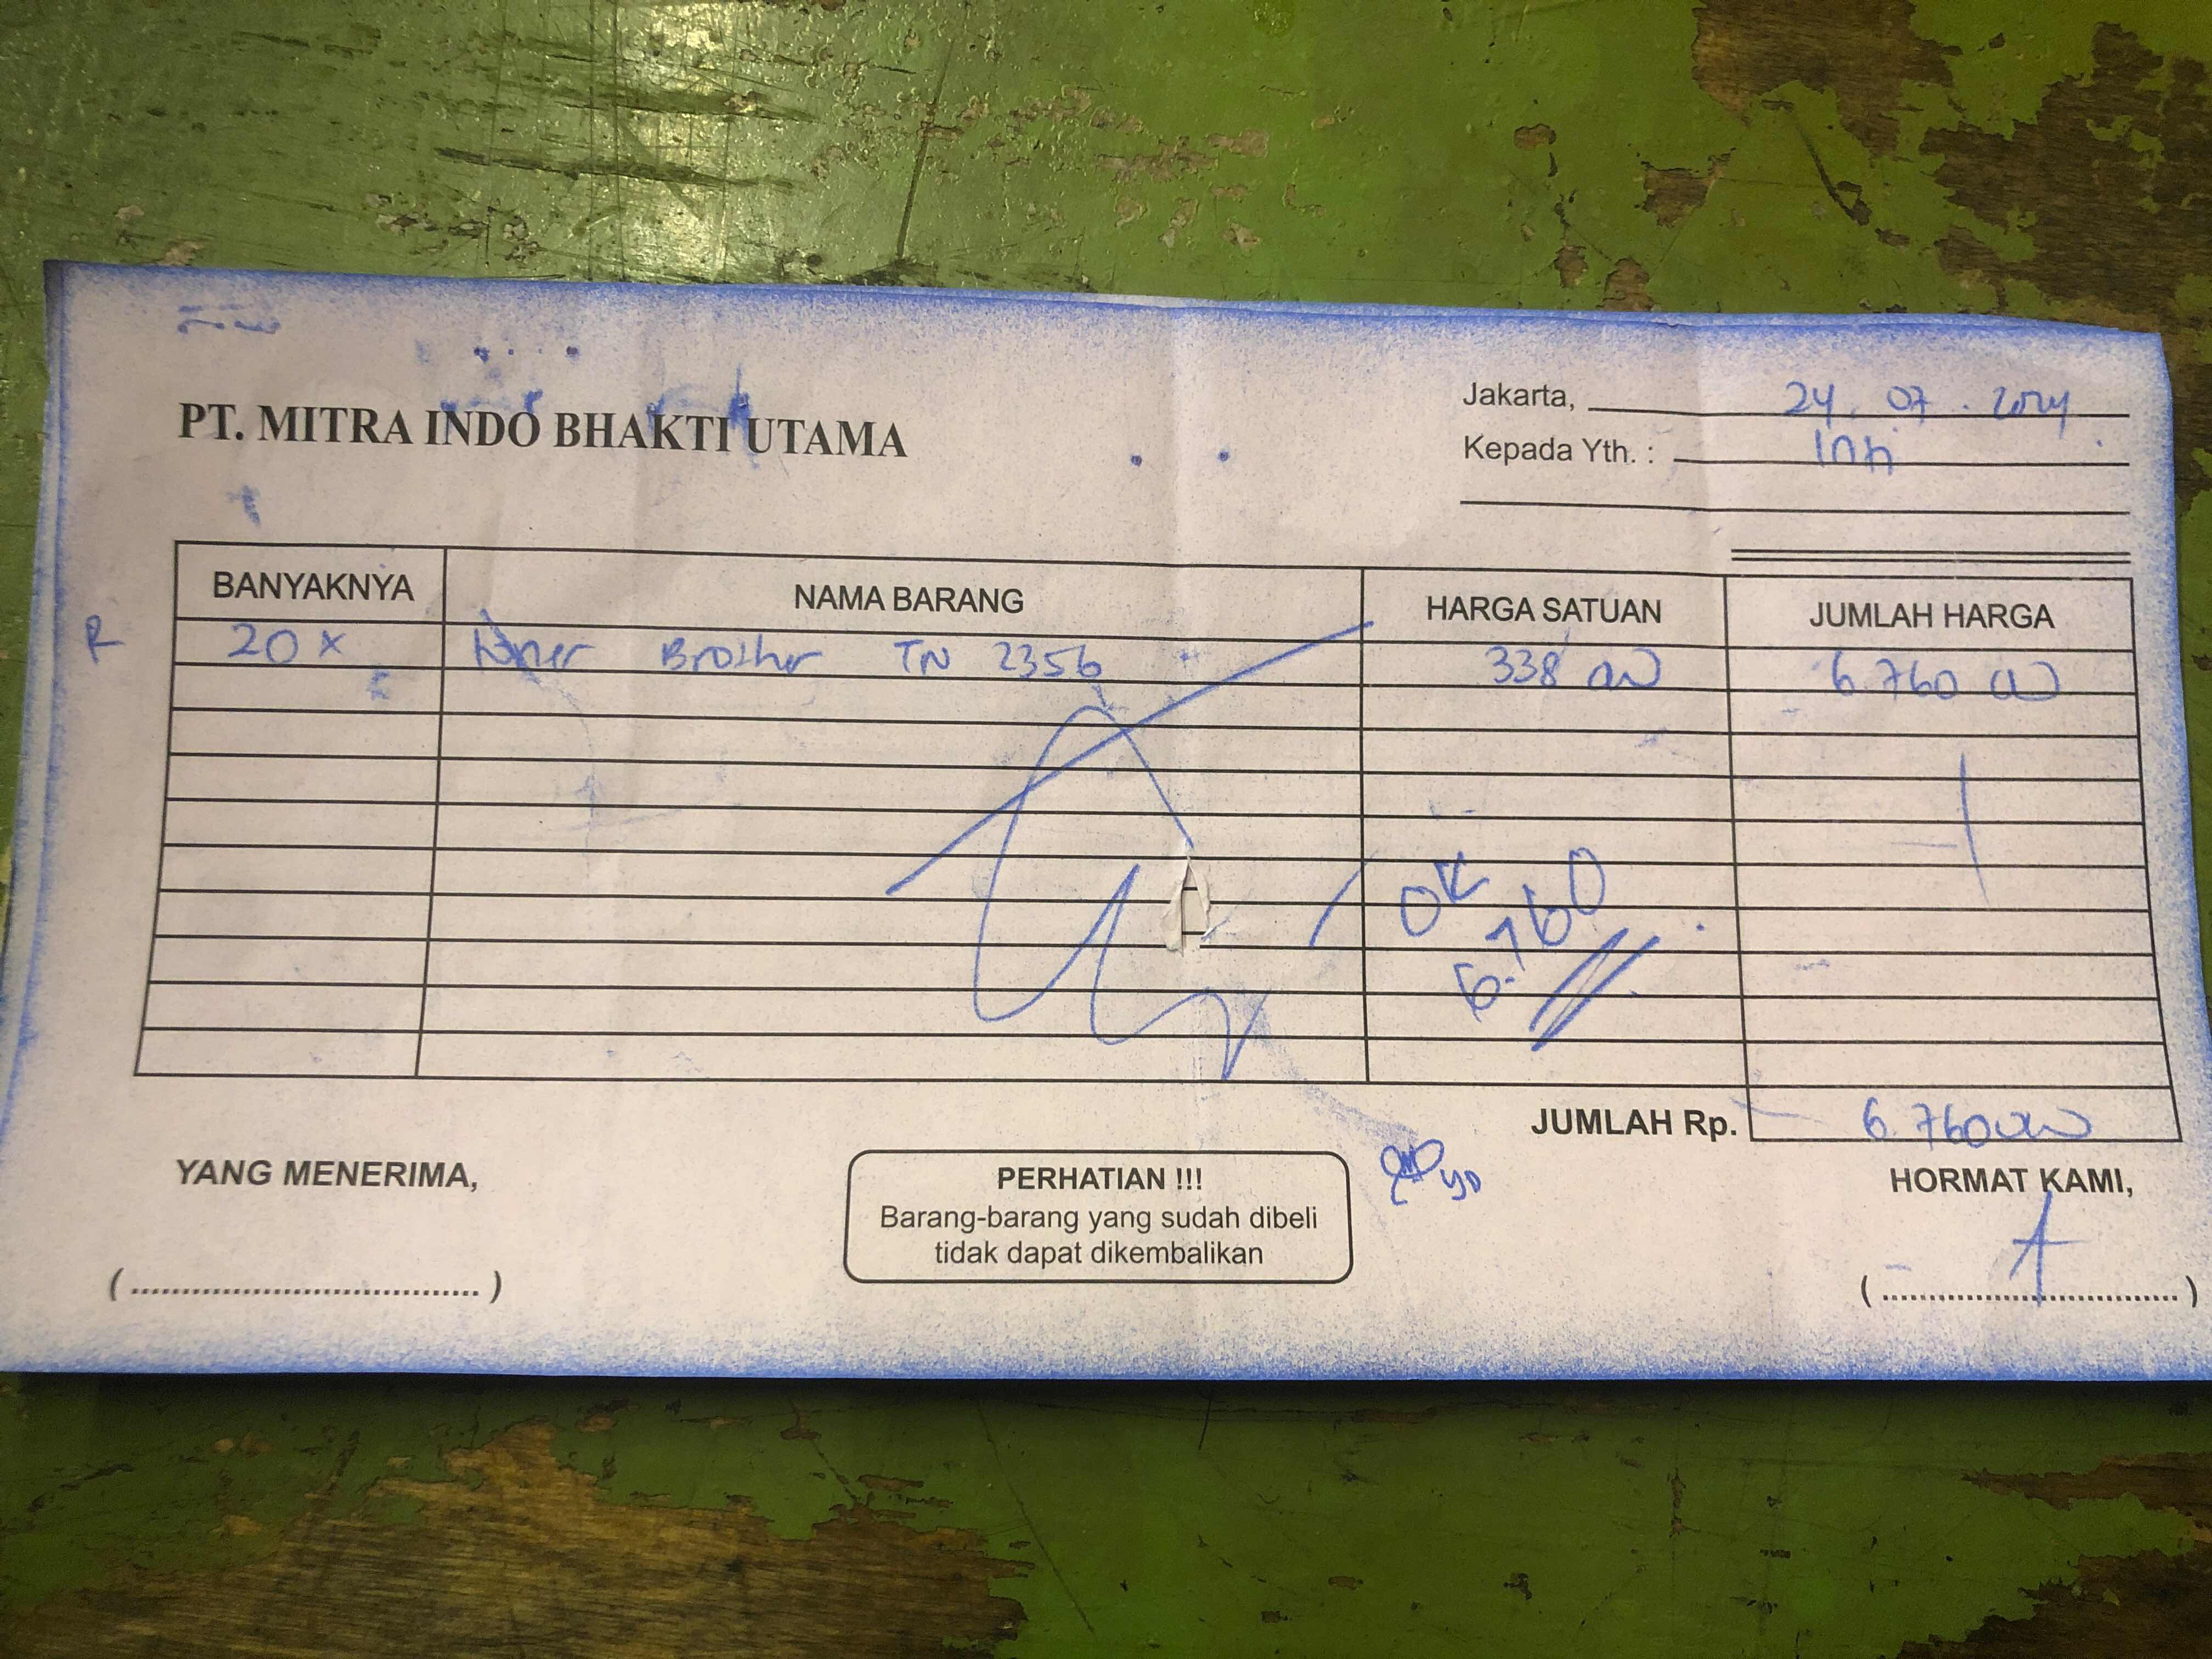 PT. MITRA INDO BHAKTI UTAMA
Jakarta, 24.07.2024
Kepada Yth. :
BANYAKNYA NAMA BARANG HARGA SATUAN JUMLAH HARGA
R 20 x toner Brother TN 2356 338 000 6.760 000
OK
6.760
JUMLAH Rp. 6.760 000
YANG MENERIMA,
PERHATIAN !!!
Barang-barang yang sudah dibeli
tidak dapat dikembalikan
HORMAT KAMI,
(....................................)
(....................................)